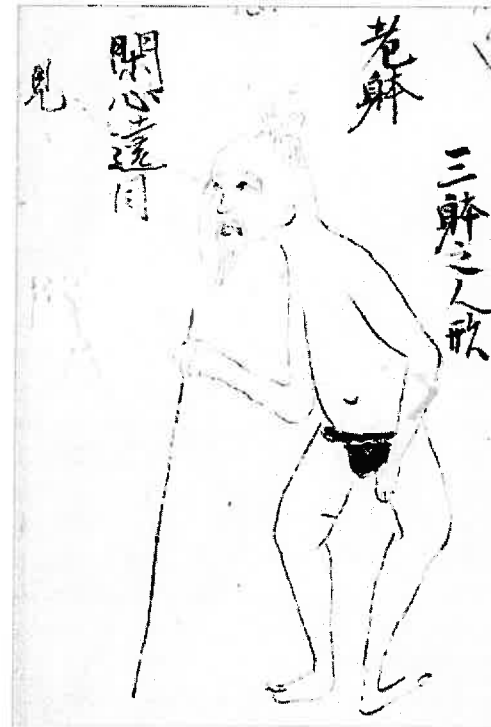 三躰之人形
老躰
閑心遠目